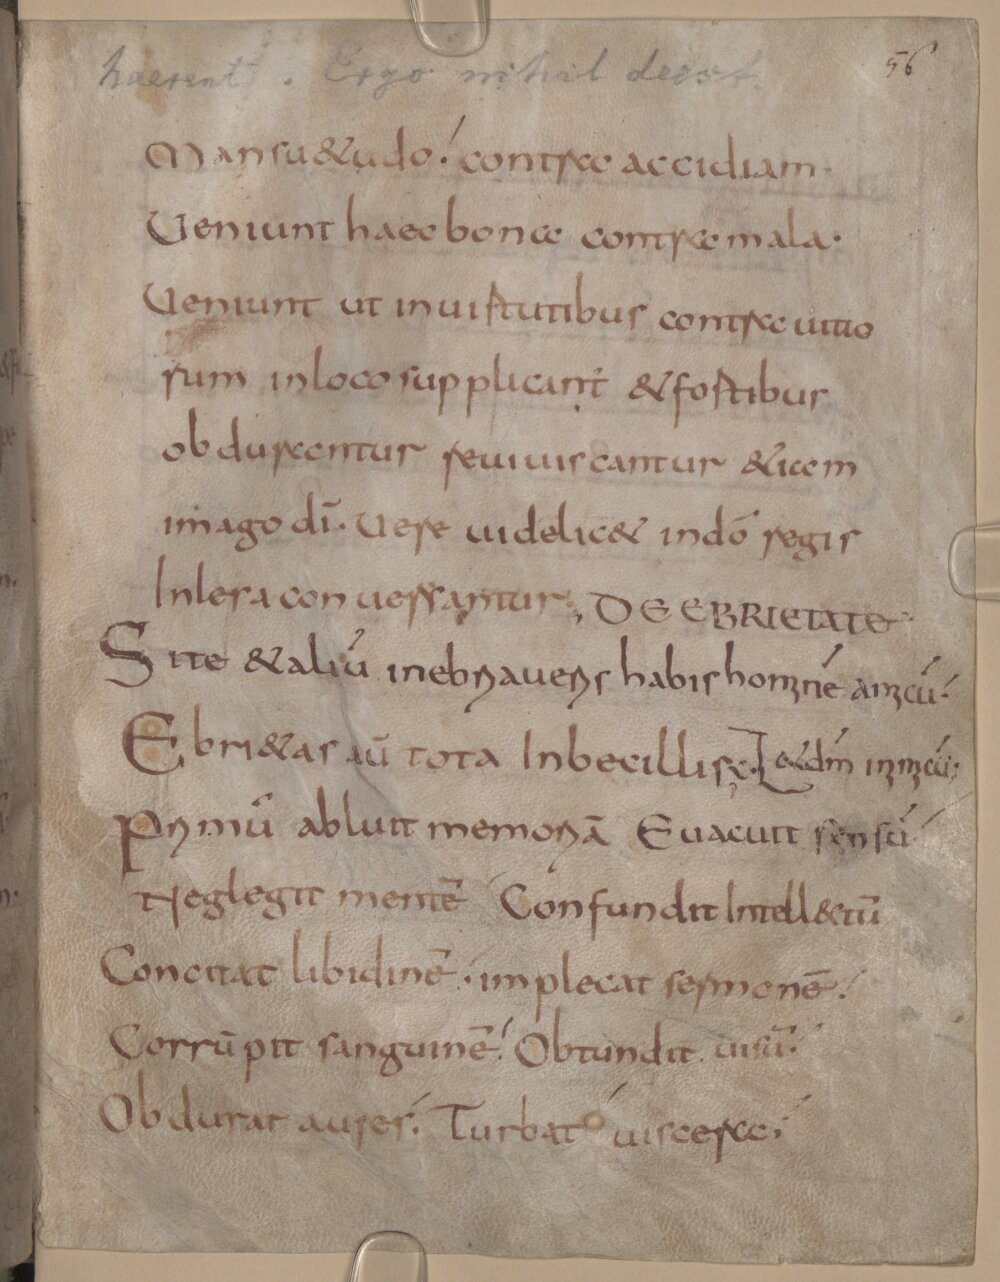 haerent. Ergo nihil deest.
56
Mansu&udo! contra accidiam.
Ueniunt haec bona contra mala.
Ueniunt ut inuirtutibus contra uitio
rum inloco supplicant & fortibus
obdurentur reuiuiscantur &
imago dī. Uere uidelic& indō regis
Inlera conuersantur, DE EBRIETATE
Site &aliū inebriaueris habis homine
Ebri&as aū tota Inbecillis
Primū abluit memoriā Euacuit sensū
Neglegit mentē Confundit Intell&ctū
Concitat libidinē. implecat sermonē.
Corrūpit sanguinē! Obtundit uisū.
Obdurat aures! Turbat uiscera;